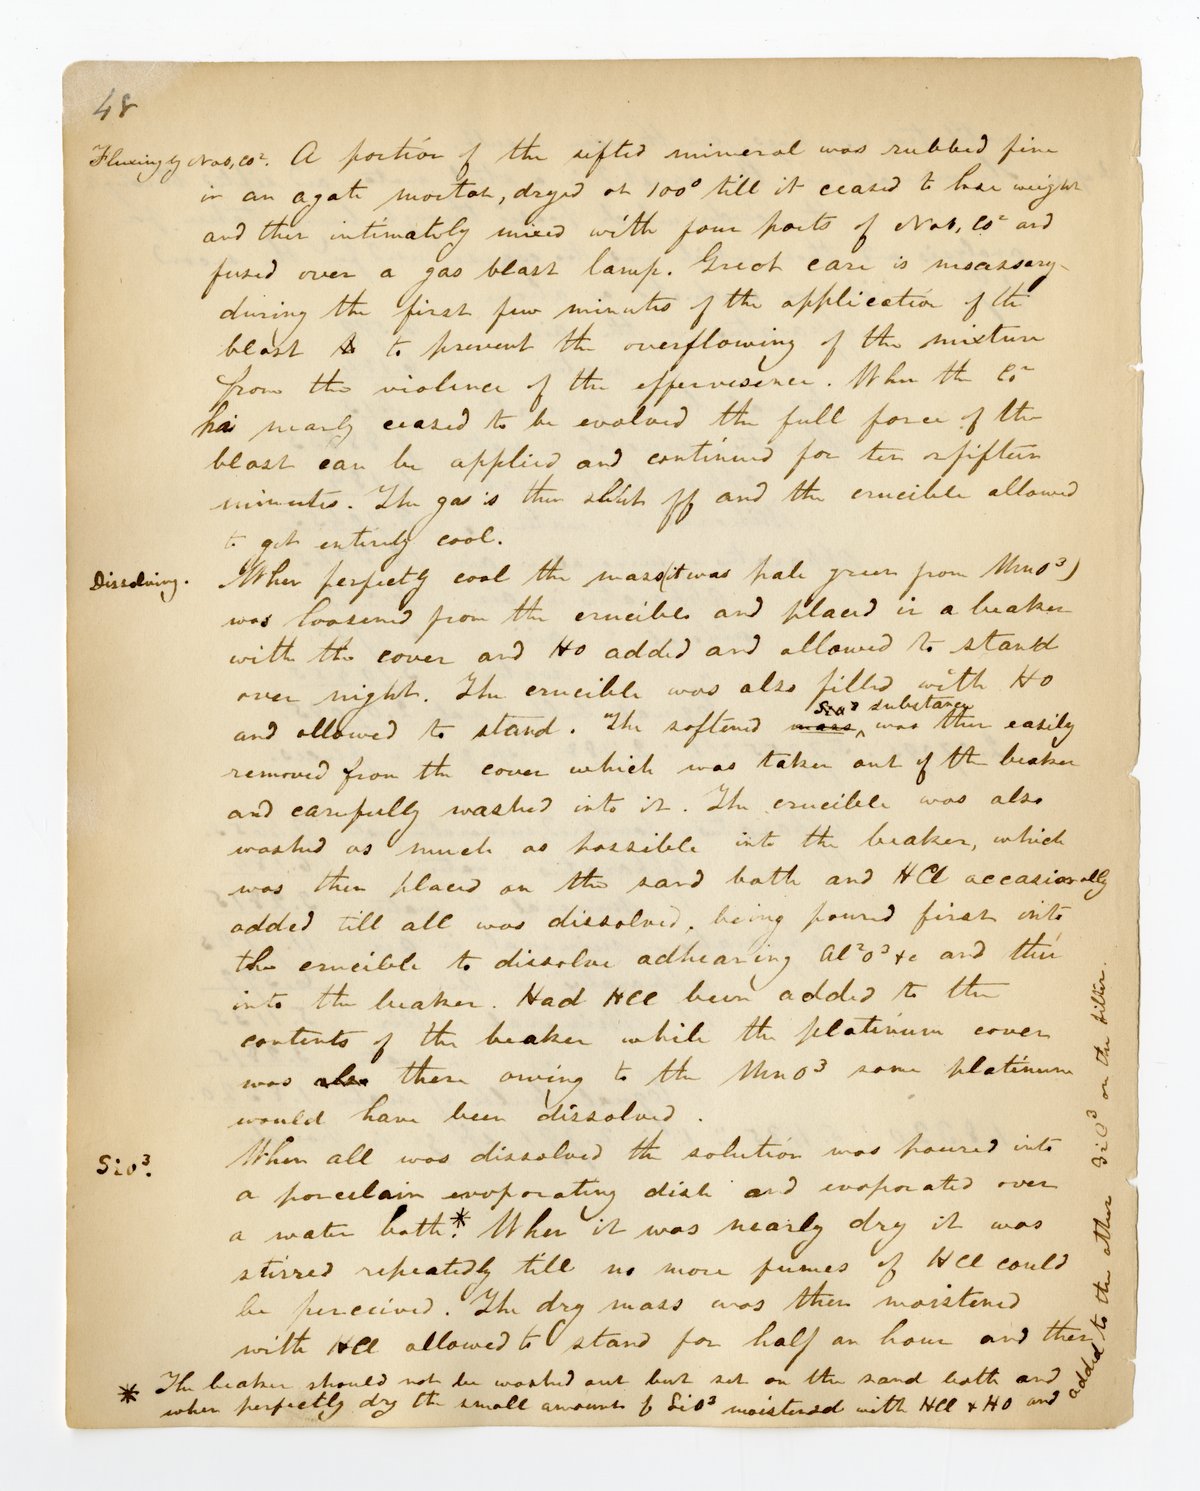 48
Fluxing by NaO, CO². A portion of the sifted mineral was rubbed fine
in an agate mortar, dryed at 100° till it ceased to lose weight
and then intimately mixed with four parts of NaO, CO² and
fused over a gas blast lamp. Great care is necassary
during the first few minutes of the application of the
blast to to prevent the overflowing of the mixture
from the violence of the effervesence. When the CO²
has nearly ceased to be evolved the full force of the
blast can be applied and continued for ten or fifteen
minutes. The gas is then shut off and the crucible allowed
to get entirely cool.
Dissolving. When perfectly cool the mass (it was pale green from MnO³)
was loosened from the crucible and placed in a beaker
with the cover and HO added and allowed to stand
over night. The crucible was also filled with HO
SiO³ substance
and allowed to stand. The softened mass was then easily
removed from the cover which was taken out of the beaker
and carefully washed into it. The crucible was also
washed as much as possible into the beaker, which
was then placed on the sand bath and HCl occasionally
added till all was dissolved, being poured first into
the crucible to dissolve adhearing Al²O³ &c and then
into the beaker. Had HCl been added to the
contents of the beaker while the platinum cover
was also there owing to the MnO³ some platinum
would have been dissolved.
SiO³. When all was dissolved the solution was poured into
a porcelain evaporating dish and evaporated over
a water bath.* When it was nearly dry it was
stirred repeatedly till no more fumes of HCl could
be perceived. The dry mass was then moistened
with HCl allowed to stand for half an hour and then
* The beaker should not be washed out but set on the sand bath and
when perfectly dry the small amount of SiO³ moistened with HCl & HO and
added to the other SiO³ on the filter.